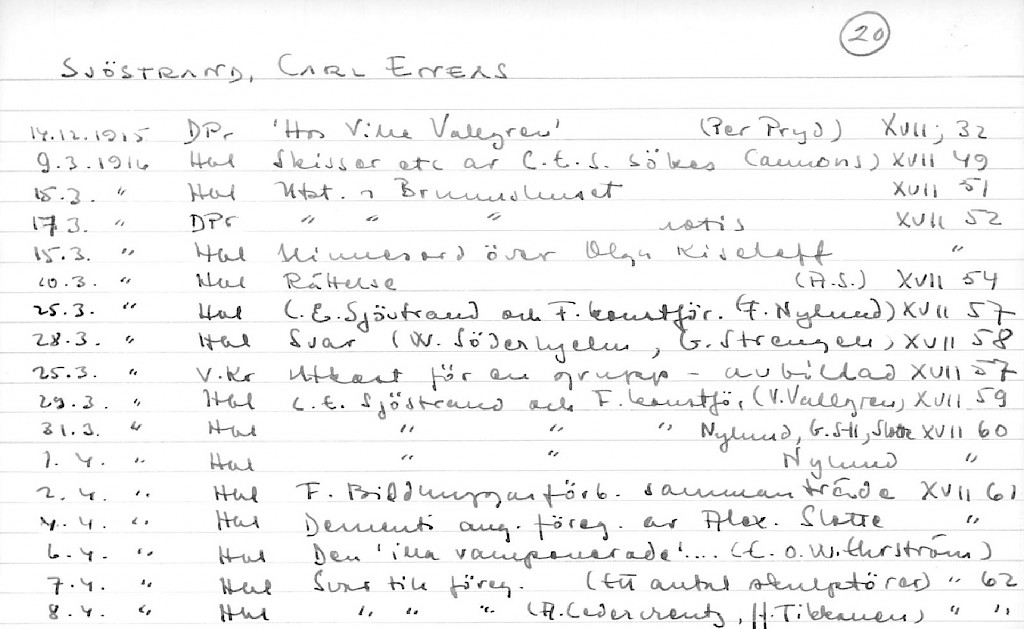 20
SJÖSTRAND, CARL ENEAS
14.12.1915 DPr 'Hos Ville Vallgren' (Per Pryd) XVII; 32
9.3.1916 Hbl Skisser etc av C.E.S. sökes (annons) XVII 49
15.3. " Hbl Utst. i Brunnshuset XVII 51
17.3. " DPr " " " notis XVII 52
15.3. " Hbl Minnesord över Olga Kiseleff "
20.3. " Hbl Rättelse (A.S.) XVII 54
25.3. " Hbl C.E. Sjöstrand och F. konstför. (F. Nylund) XVII 57
28.3. " Hbl Svar (W. Söderhjelm, G. Strengell) XVII 58
25.3. " V.Kr Utkast för en grupp - avbildad XVII 57
29.3. " Hbl C.E. Sjöstrand och F. konstfö. (V. Vallgren) XVII 59
31.3. " Hbl " " " Nylund, G. Stll, Slotte XVII 60
1.4. " Hbl " " Nylund "
2.4. " Hbl F. Bildhuggarförb. sammanträde XVII 61
4.4. " Hbl Dementi ang. föreg. av Alex. Slotte "
6.4. " Hbl Den 'illa ramponerade'.... (E.O.W. Ehrström)
7.4. " Hbl Svar till föreg. (Ett antal skulptörer) " 62
8.4. " Hbl " " " (A. Cedercreutz, H. Tikkanen) " "